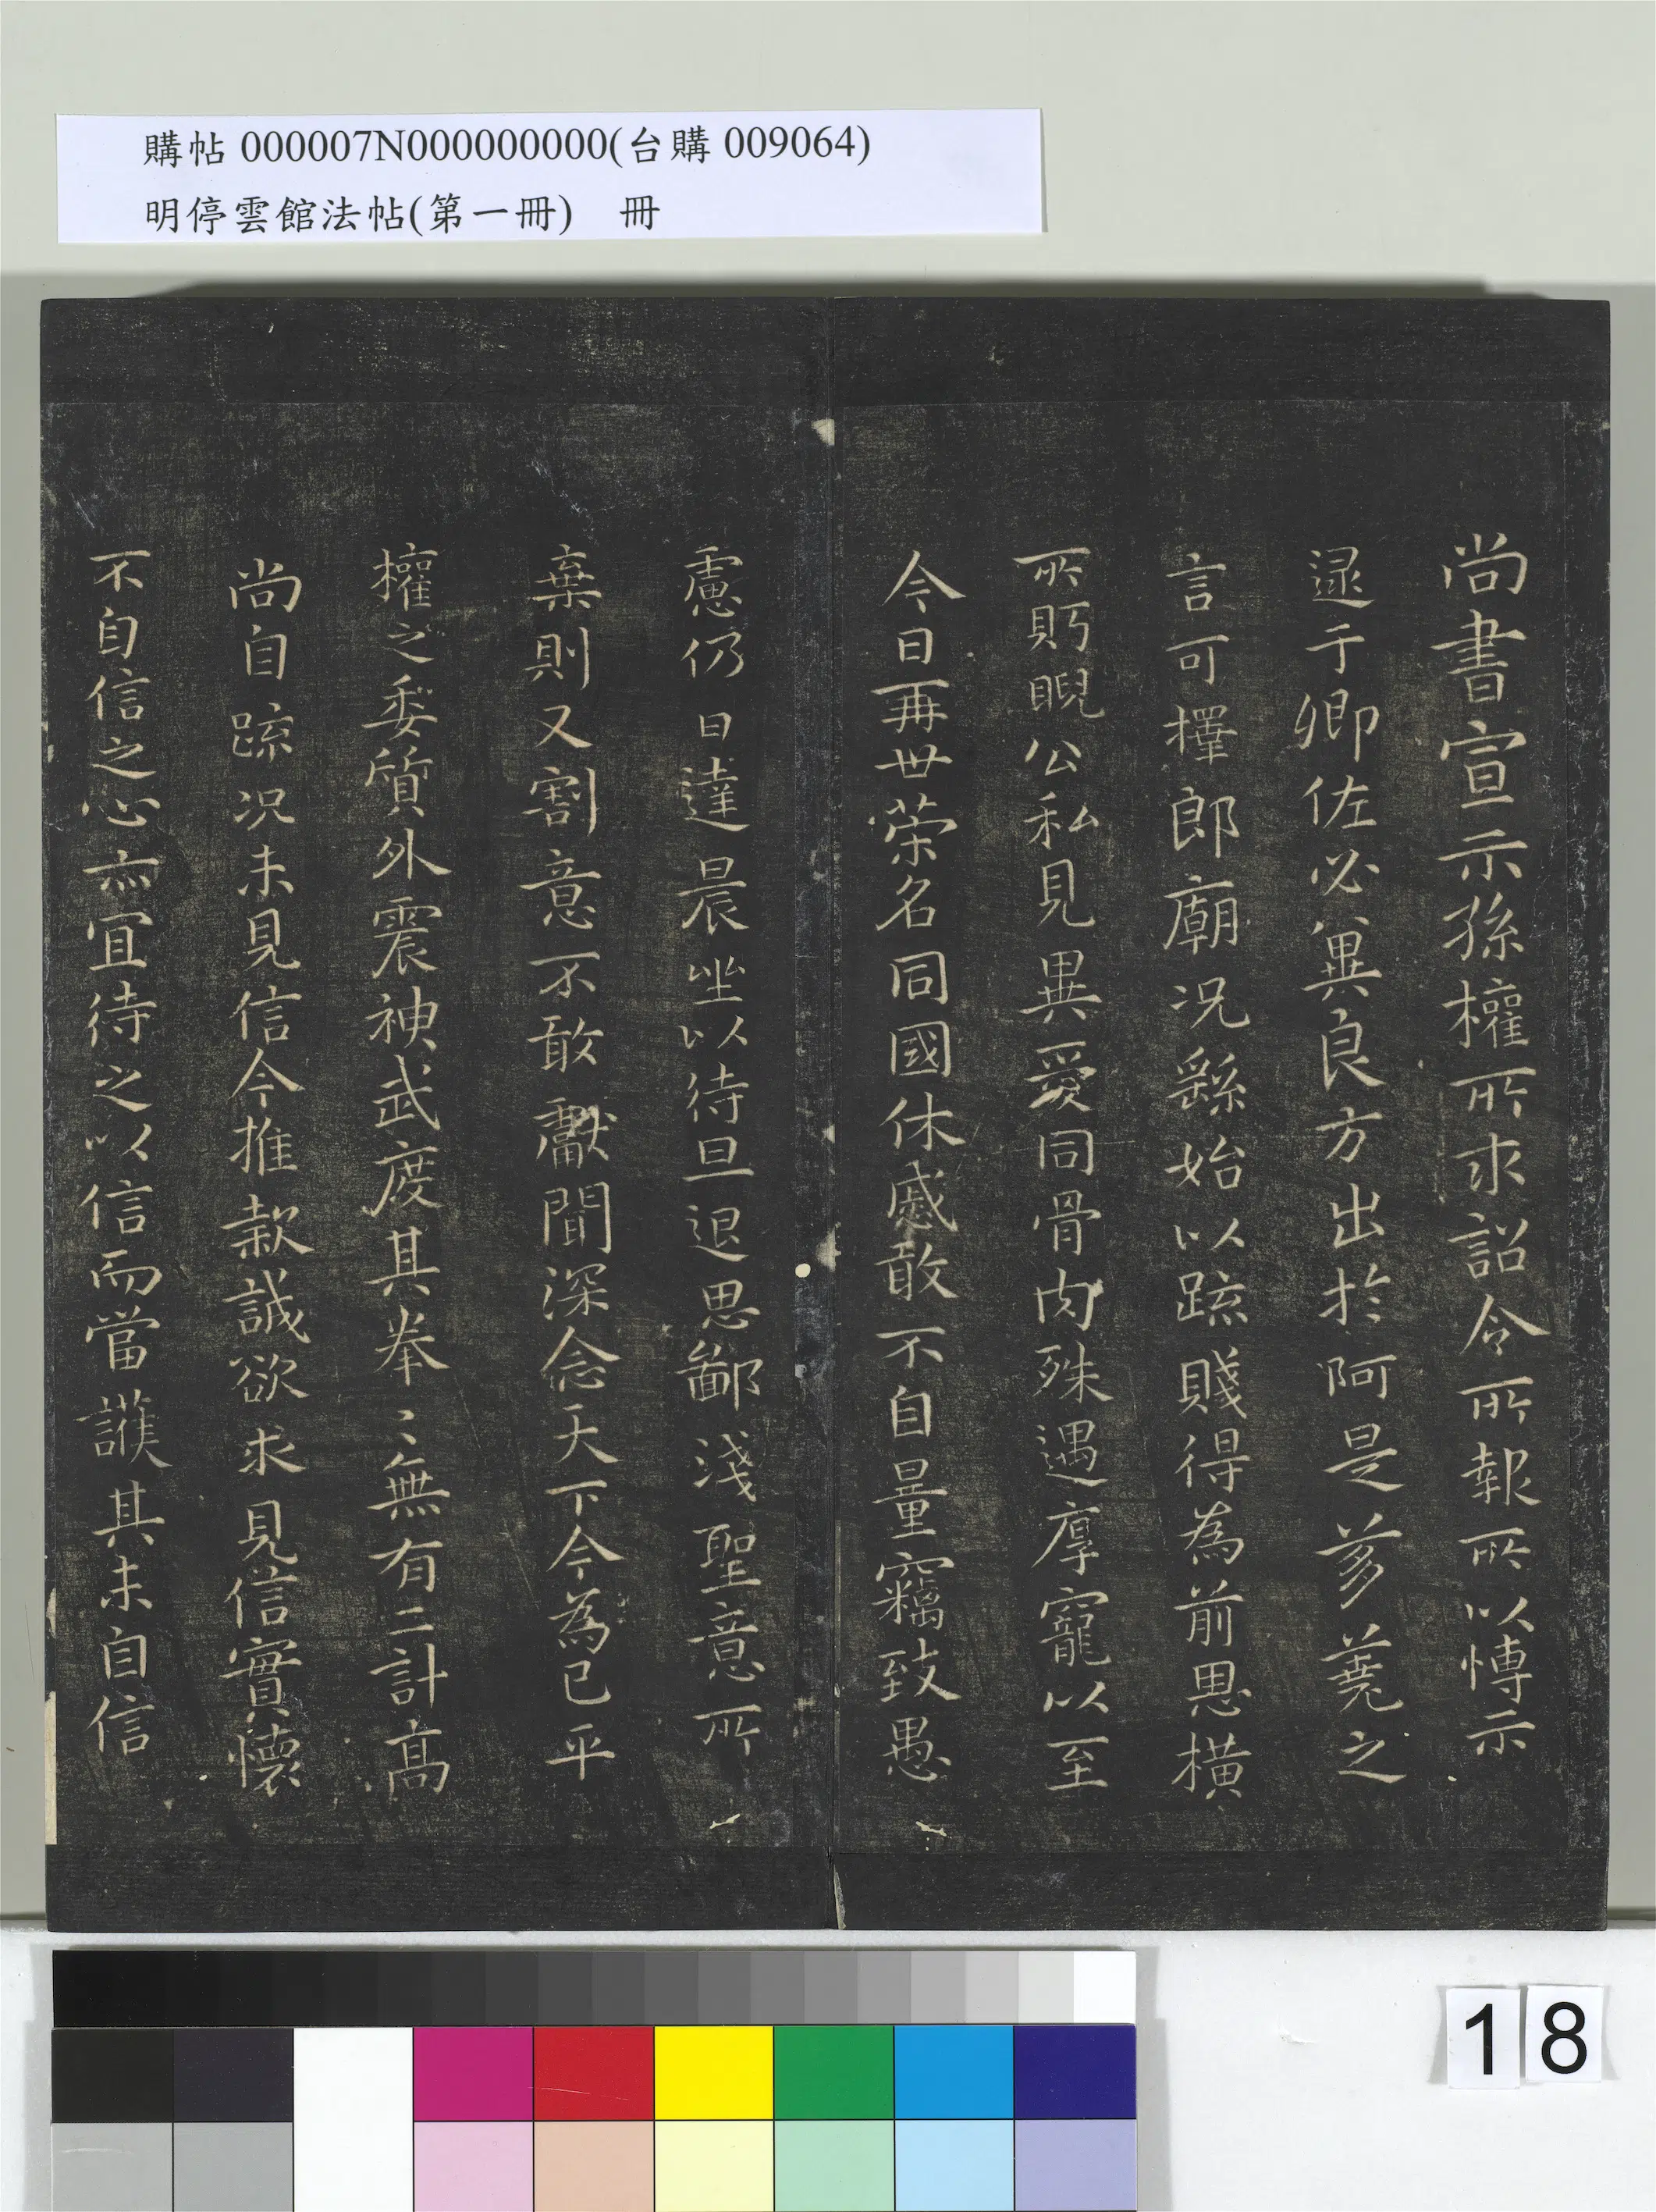 購帖000007N000000000(台購009064)
明停雲館法帖(第一冊) 冊
尚書宣示孫權所求詔令所報所以博示
逯于卿佐必冀良方出於阿是芻蕘之
言可擇郎廟況繇始以疏賤得為前恩橫
所眄睨公私見異愛同骨肉殊遇厚寵以至
今日再世榮名同國休慼敢不自量竊致愚
慮仍日達晨坐以待旦退思鄙淺聖意所
棄則又割意不敢獻聞深念天下今為已平
權之委質外震神武度其拳〻無有二計高
尚自疏況未見信今推款誠欲求見信實懷
不自信之心亦宜待之以信而當護其未自信
18